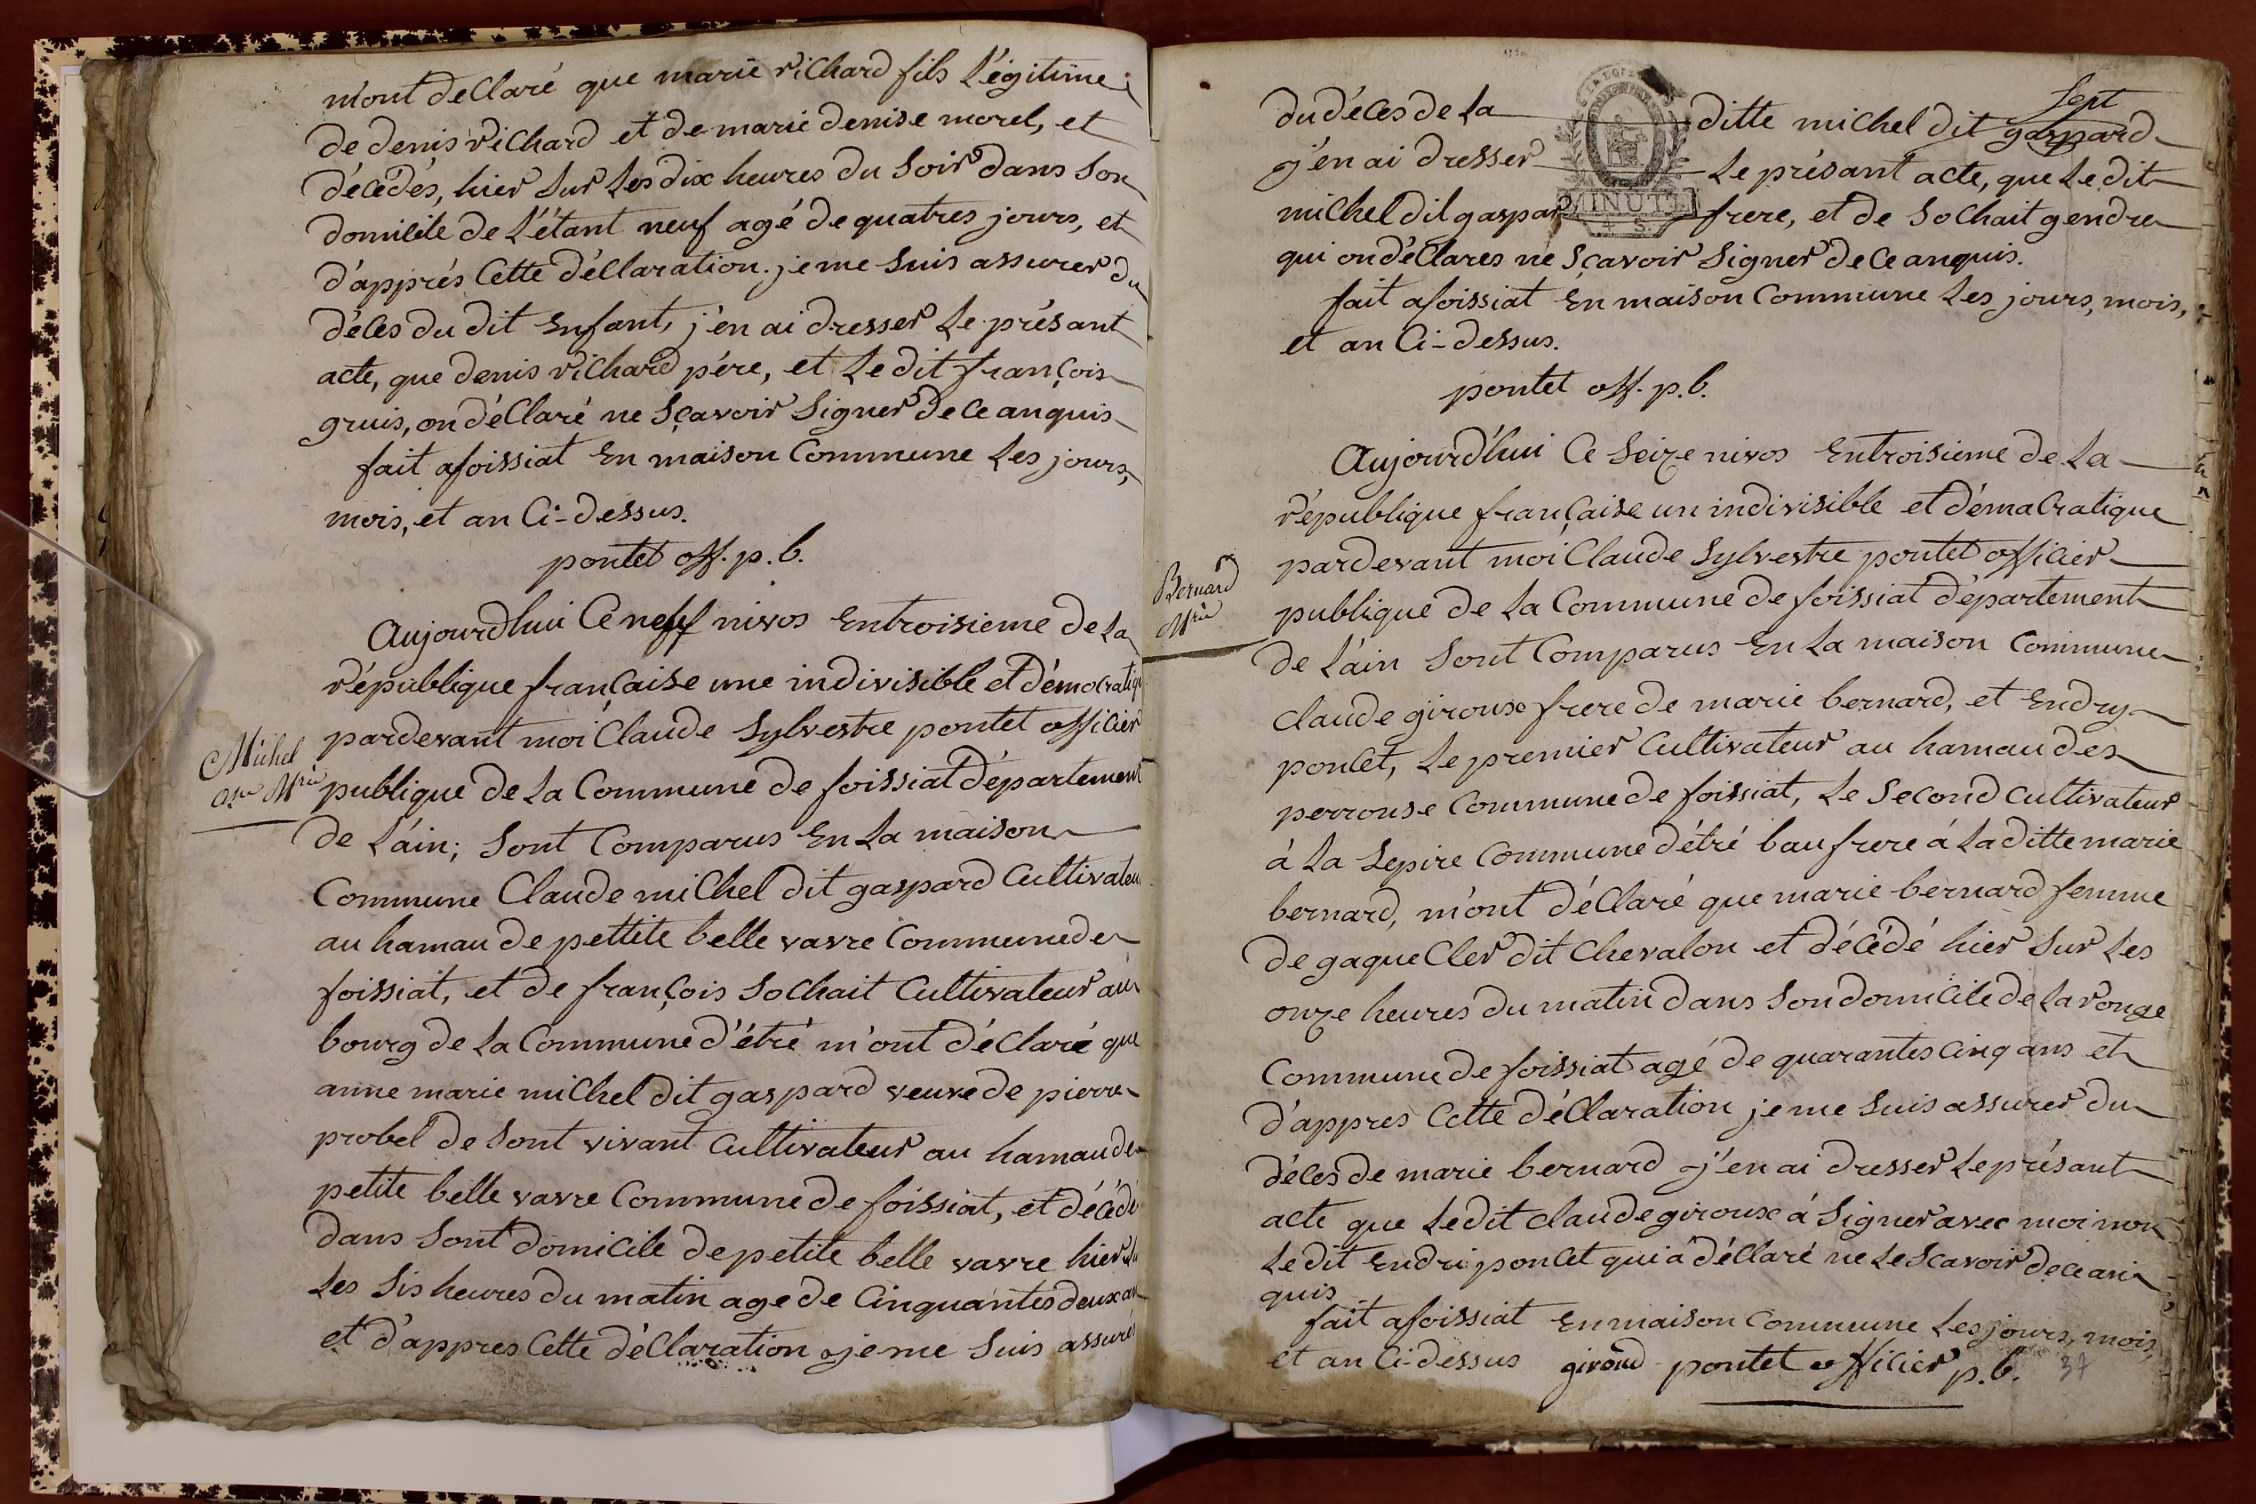 m'ont déClaré que marie richard fils L'égitime
de denis richard et de marie denise morel, et
décédés, hier sur Les dix heures du soir dans son
domicile de L'étant neuf agé de quatres jours, et
d'apprés Cette déClaration. je me suis assurer du
déCes du dit Enfant, j'en ai dresser Le présant
acte, que denis richard pére, et Le dit françois
gruis, on déClaré ne sçavoir signer de ce anquis
fait afoissiat En maison Commune Les jours,
mois, et an Ci-dessus.
pontet off. p. b.
Aujourdhui Ce neff nivos Entroisieme de La
république française une indivisible et démocratiqu
pardevant moi Claude Sylvestre pontet officier
Michel
ane Mrie
publique de La Commune de foissiat département
de L'áin; sont Comparus En La maison
Commune Claude miChel dit gaspard Cultivateu
au hamau de pettite belle vavre Commune de
foissiat, et de françois soChait Cultivateur au
bourg de La Commune d'étré m'ont déClaré que
anne marie miChel dit gaspard veuve de pierre
probel de sont vivant Cultivateur au hamau de
petite belle vavre Commune de foissiat, et décédé
dans sont domicile de petite belle vavre hier su
Les sis heures du matin age de Cinquantes deux an
et d'appres Cette déClaration je me suis assurer
sept
du déCes de La ditte miChel dit gaspard
j'en ai dresser Le présant acte, que Le dit
miChel dit gaspar frere, et de soChait gendre
MINUTE
qui on déClares ne sçavoir signer de Ce anquis.
fait afoissiat En maison Commune Les jours, mois,
et an Ci-dessus.
pontet off. p. b.
Aujourd'hui Ce seize nivos Entroisieme de La
république française un indivisible et démaCratique
pardevant moi Claude Sylvestre pontet officier
Bernard
Mrie
publique de La Commune de foissiat département
de L'áin sont Comparus En La maison Commune
Claude giroux frere de marie bernard, et Endry
ponCet, Le premier Cultivateur au hamau des
perrouse Commune de foissiat, Le second Cultivateur
á La sepire Commune d'étré baufrere á La ditte marie
bernard, m'ont déClaré que marie bernard femme
de gaque Cler dit Chevalon et décédé hier sur Les
onze heures du matin dans son domicile de La ronge
Commune de foissiat agé de quarantes Cinq ans et
d'appres Cette déClaration je me suis assurer du
déCes de marie bernard j'en ai dresser Le présant
acte que Le dit Claude giroux á signer avec moi non
Le dit Endri ponCet qui á déClaré ne Le scavoir de ce an
quis
fait afoissiat En maison Commune Les jours, mois,
et an Ci-dessus giroud pontet officier p. b.
37